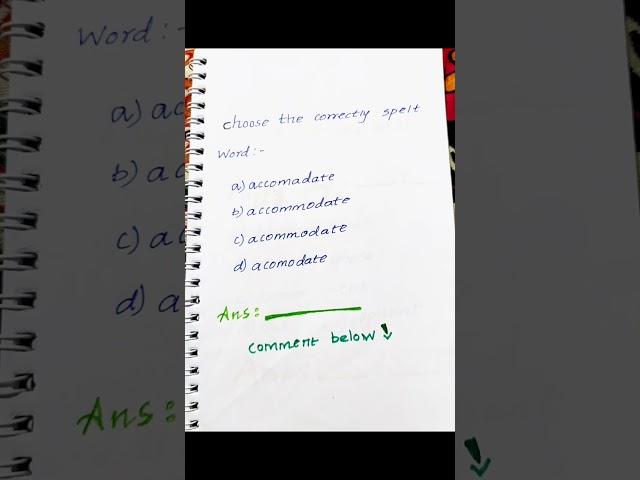 choose the correctly spelt
word:-
a) accomadate
b) accommodate
c) acommodate
d) acomodate
Ans:
comment below